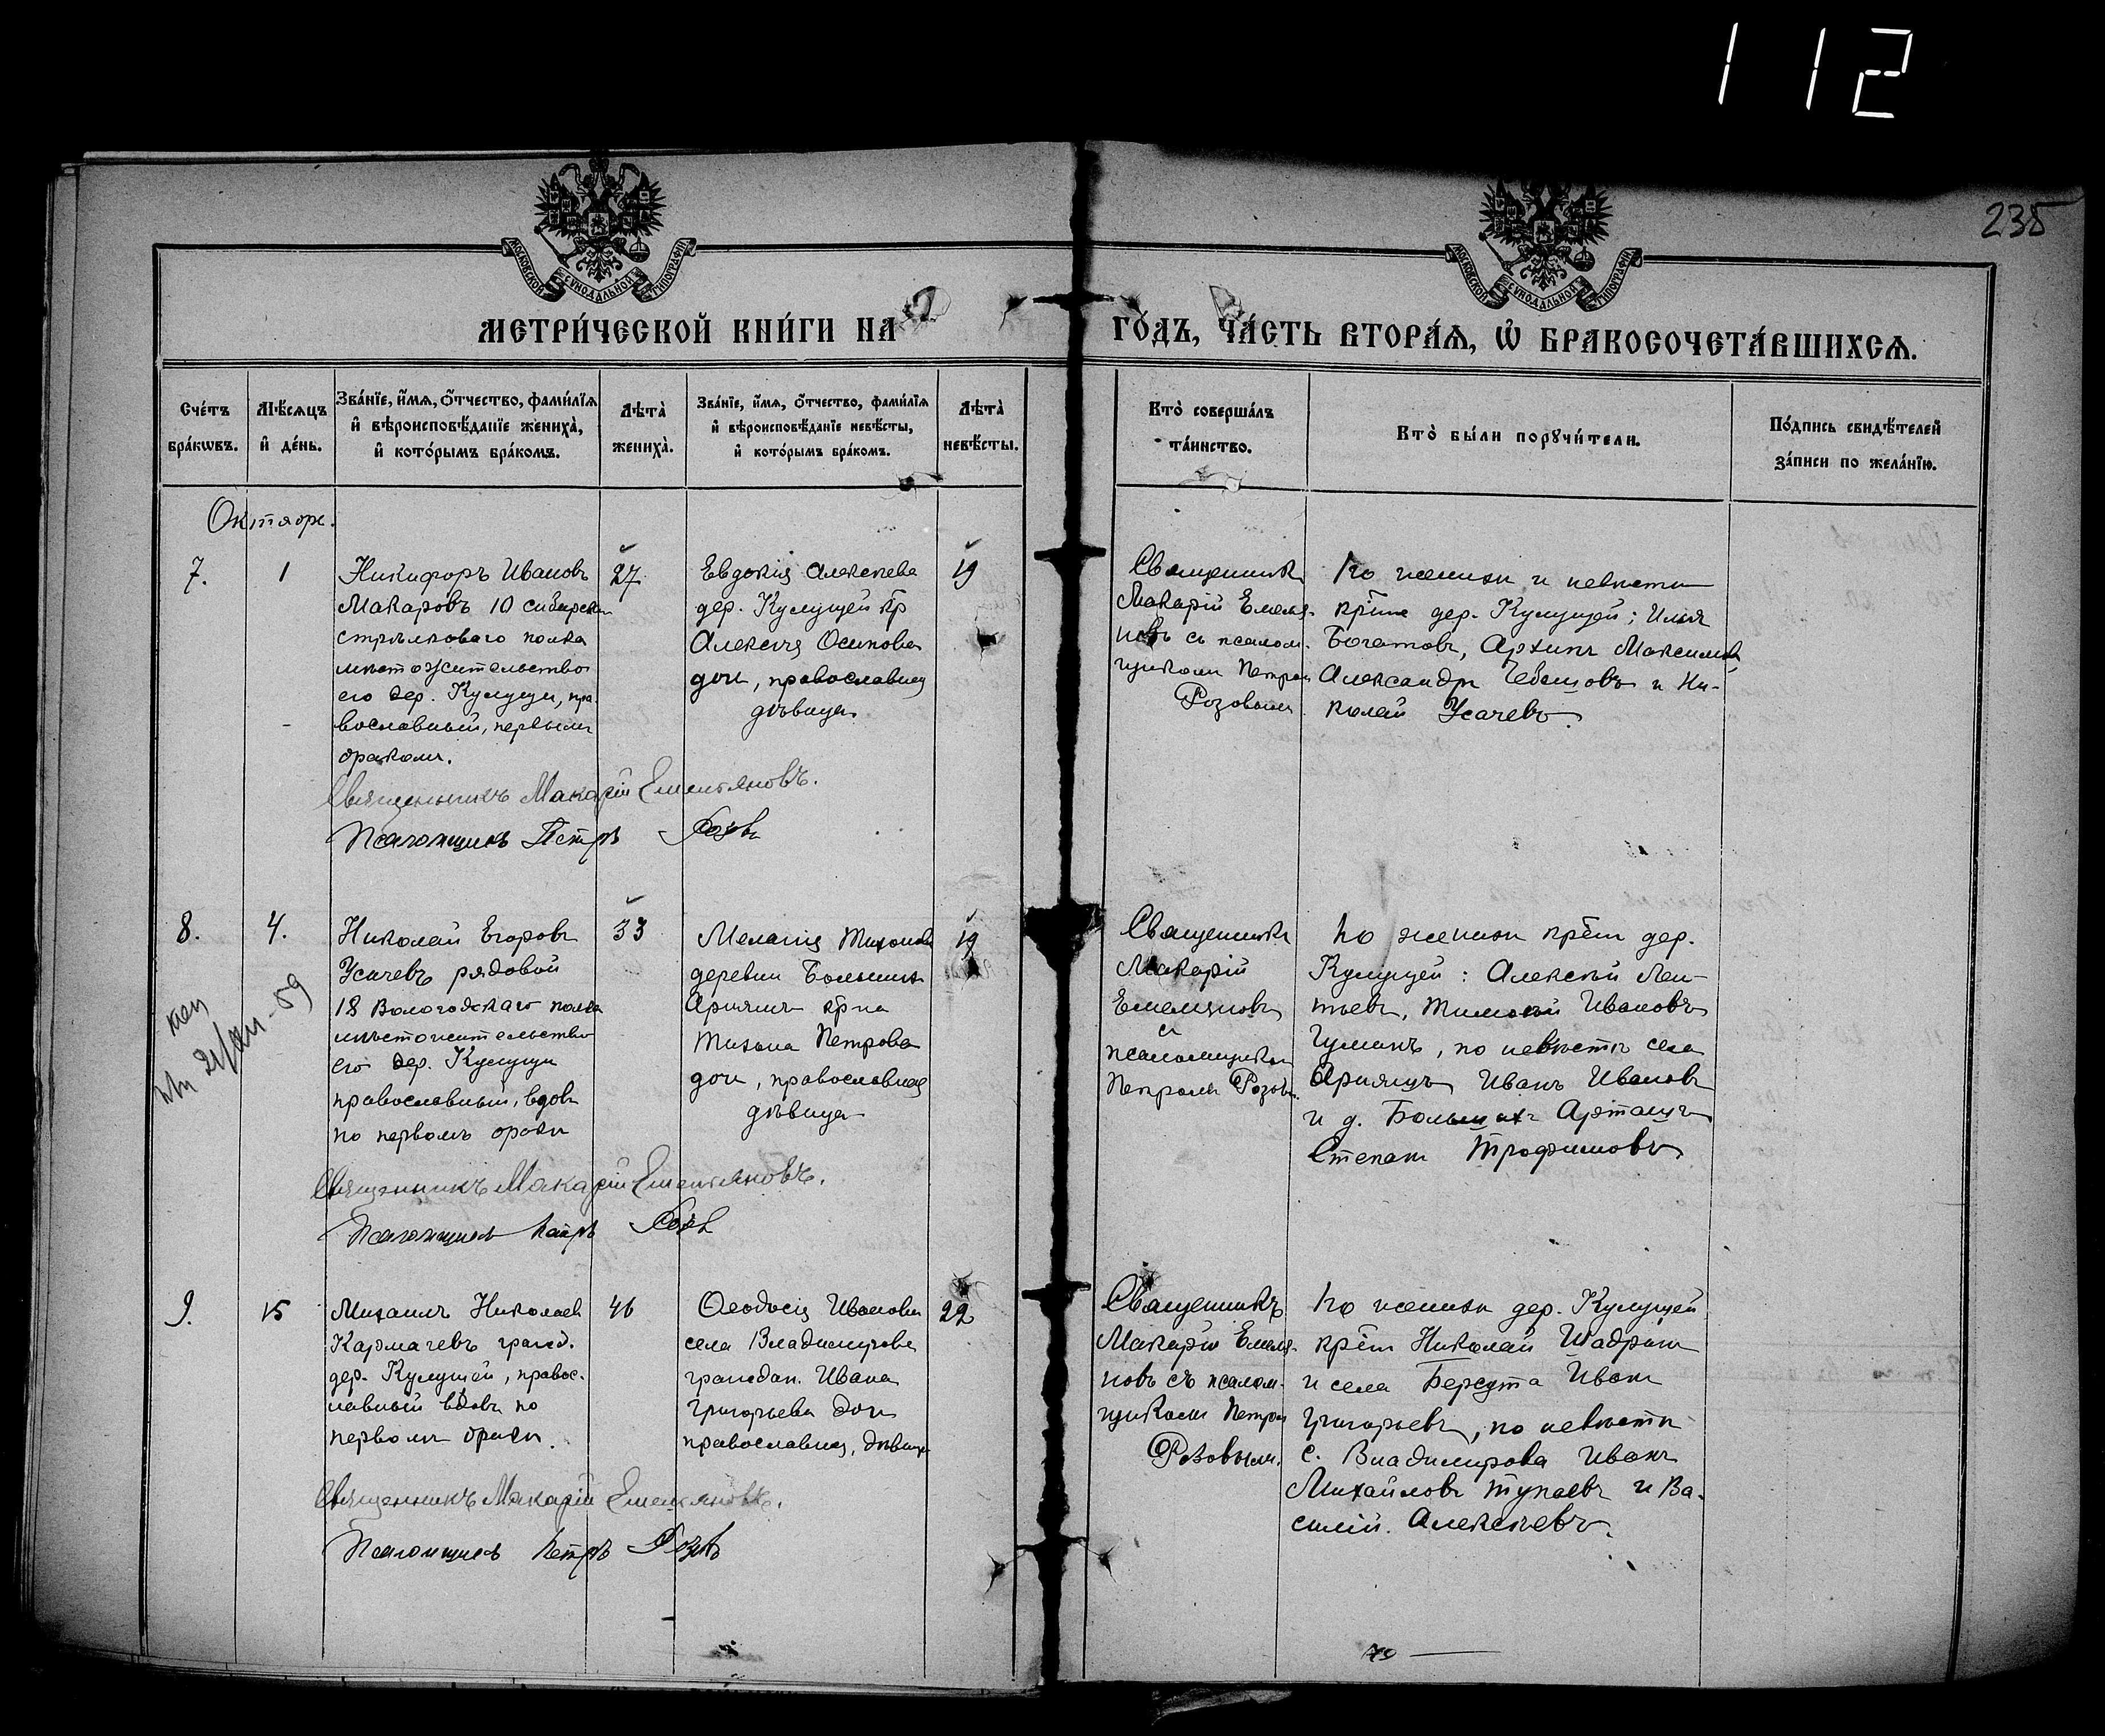 112
235
МОСКОВСКОЙ СѴНОДАЛЬНОЙ ТИПОГРАФІИ
МОСКОВСКОЙ СѴНОДАЛЬНОЙ ТИПОГРАФІИ
МЕТРИ́ЧЕСКОЙ КНИ́ГИ НА
ГО́ДЪ, ЧА́СТЬ ВТОРА́Ѧ, Ѽ БРАКОСОЧЕТА́ВШИХСѦ.
Сче́тъ бра́кѡвъ.
Мѣ́сѧцъ и҆ де́нь.
Зва́нїе, и҆́мѧ, ѻ҆́тчество, фами́лїѧ
и҆ вѣроисповѣ́данїе жениха̀,
и҆ кото́рымъ бра́комъ.
Лѣта̀ жениха̀.
Зва́нїе, и҆́мѧ, ѻ҆́тчество, фами́лїѧ
и҆ вѣроисповѣ́данїе невѣ́сты,
и҆ кото́рымъ бра́комъ.
Лѣта̀ невѣ́сты.
Кто̀ соверша́лъ та́инство.
Кто̀ бы́ли порꙋчи́тели.
По́дпись свидѣ́телей
за́писи по жела́нїю.
Октябрь.
7.
1
Никифоръ Ивановъ
Макаровъ 10 сибирскаго
стрѣлковаго полка
мѣстожительство
его дер. Кулущи, пра
вославный, первымъ
бракомъ.
27
Евдокія Алексѣева
дер. Кулущей кр
Алексѣя Осипова
дочь, православная
дѣвица
19
Священникъ
Макарій Емелья-
новъ съ псалом-
щикомъ Петромъ
Розовымъ
По женихѣ и невѣстѣ
крѣне дер. Кулущей; Илья
Богатовъ, Архипъ Максимовъ
Александръ и Ни-
колай Усачевъ.
Священникъ Макарій Емельяновъ.
Псаломщикъ Петръ Розовъ
8.
4.
Николай Егоровъ
Усачевъ рядовой
18 Вологодскаго полка
мѣстожительство
его дер. Кулущи
православный, вдовъ
по первомъ бракѣ
33
Меланія Тихонова
деревни Большихъ
кр-на
Тихона Петрова
дочь, православная
дѣвица
19
Священникъ
Макарій
Емельяновъ
съ
псаломщикомъ
Петромъ Розов.
По женихѣ крѣне дер.
Кулущей: Алексѣй Леон-
тьевъ, Тимофей Ивановъ
по невѣстѣ села
Иванъ Ивановъ
и д. Большихъ
Степанъ Трофимовъ
Священникъ Макарій Емельяновъ.
Псаломщикъ Петръ Розовъ
9.
15
Михаилъ Николаевъ
Кармачевъ гражд.
дер. Кулущей, правос-
лавный вдовъ по
первомъ бракѣ.
46
Ѳеодосія Иванова
села Владимірова
граждан. Ивана
Григорьева дочь
православная, дѣвица
22
Священникъ
Макарій Емелья-
новъ съ псалом-
щикомъ Петромъ
Розовымъ.
По женихѣ дер. Кулущей
крѣне Николай Шадринъ
и села Иванъ
Григорьевъ, по невѣстѣ
с. Владимірова Иванъ
Михайловъ Тупаевъ и Ва-
силій Алексѣевъ.
Священникъ Макарій Емельяновъ.
Псаломщикъ Петръ Розовъ